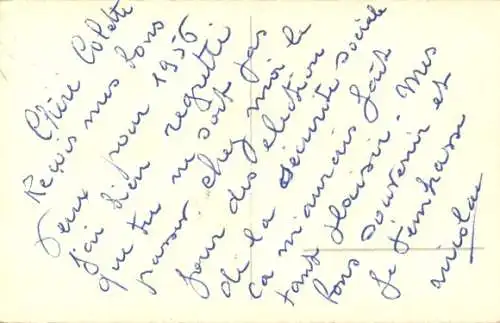 Chère Colette
Reçois mes bons
veux pour 1956
J'ai bien regretté
que tu ne sois pas
passer chez moi le
jour des élection
de la sécurité sociale
ca m'aurais fait
tant plaisir. Mes
bons souvenir et
Je t'embrasse
Nicolas